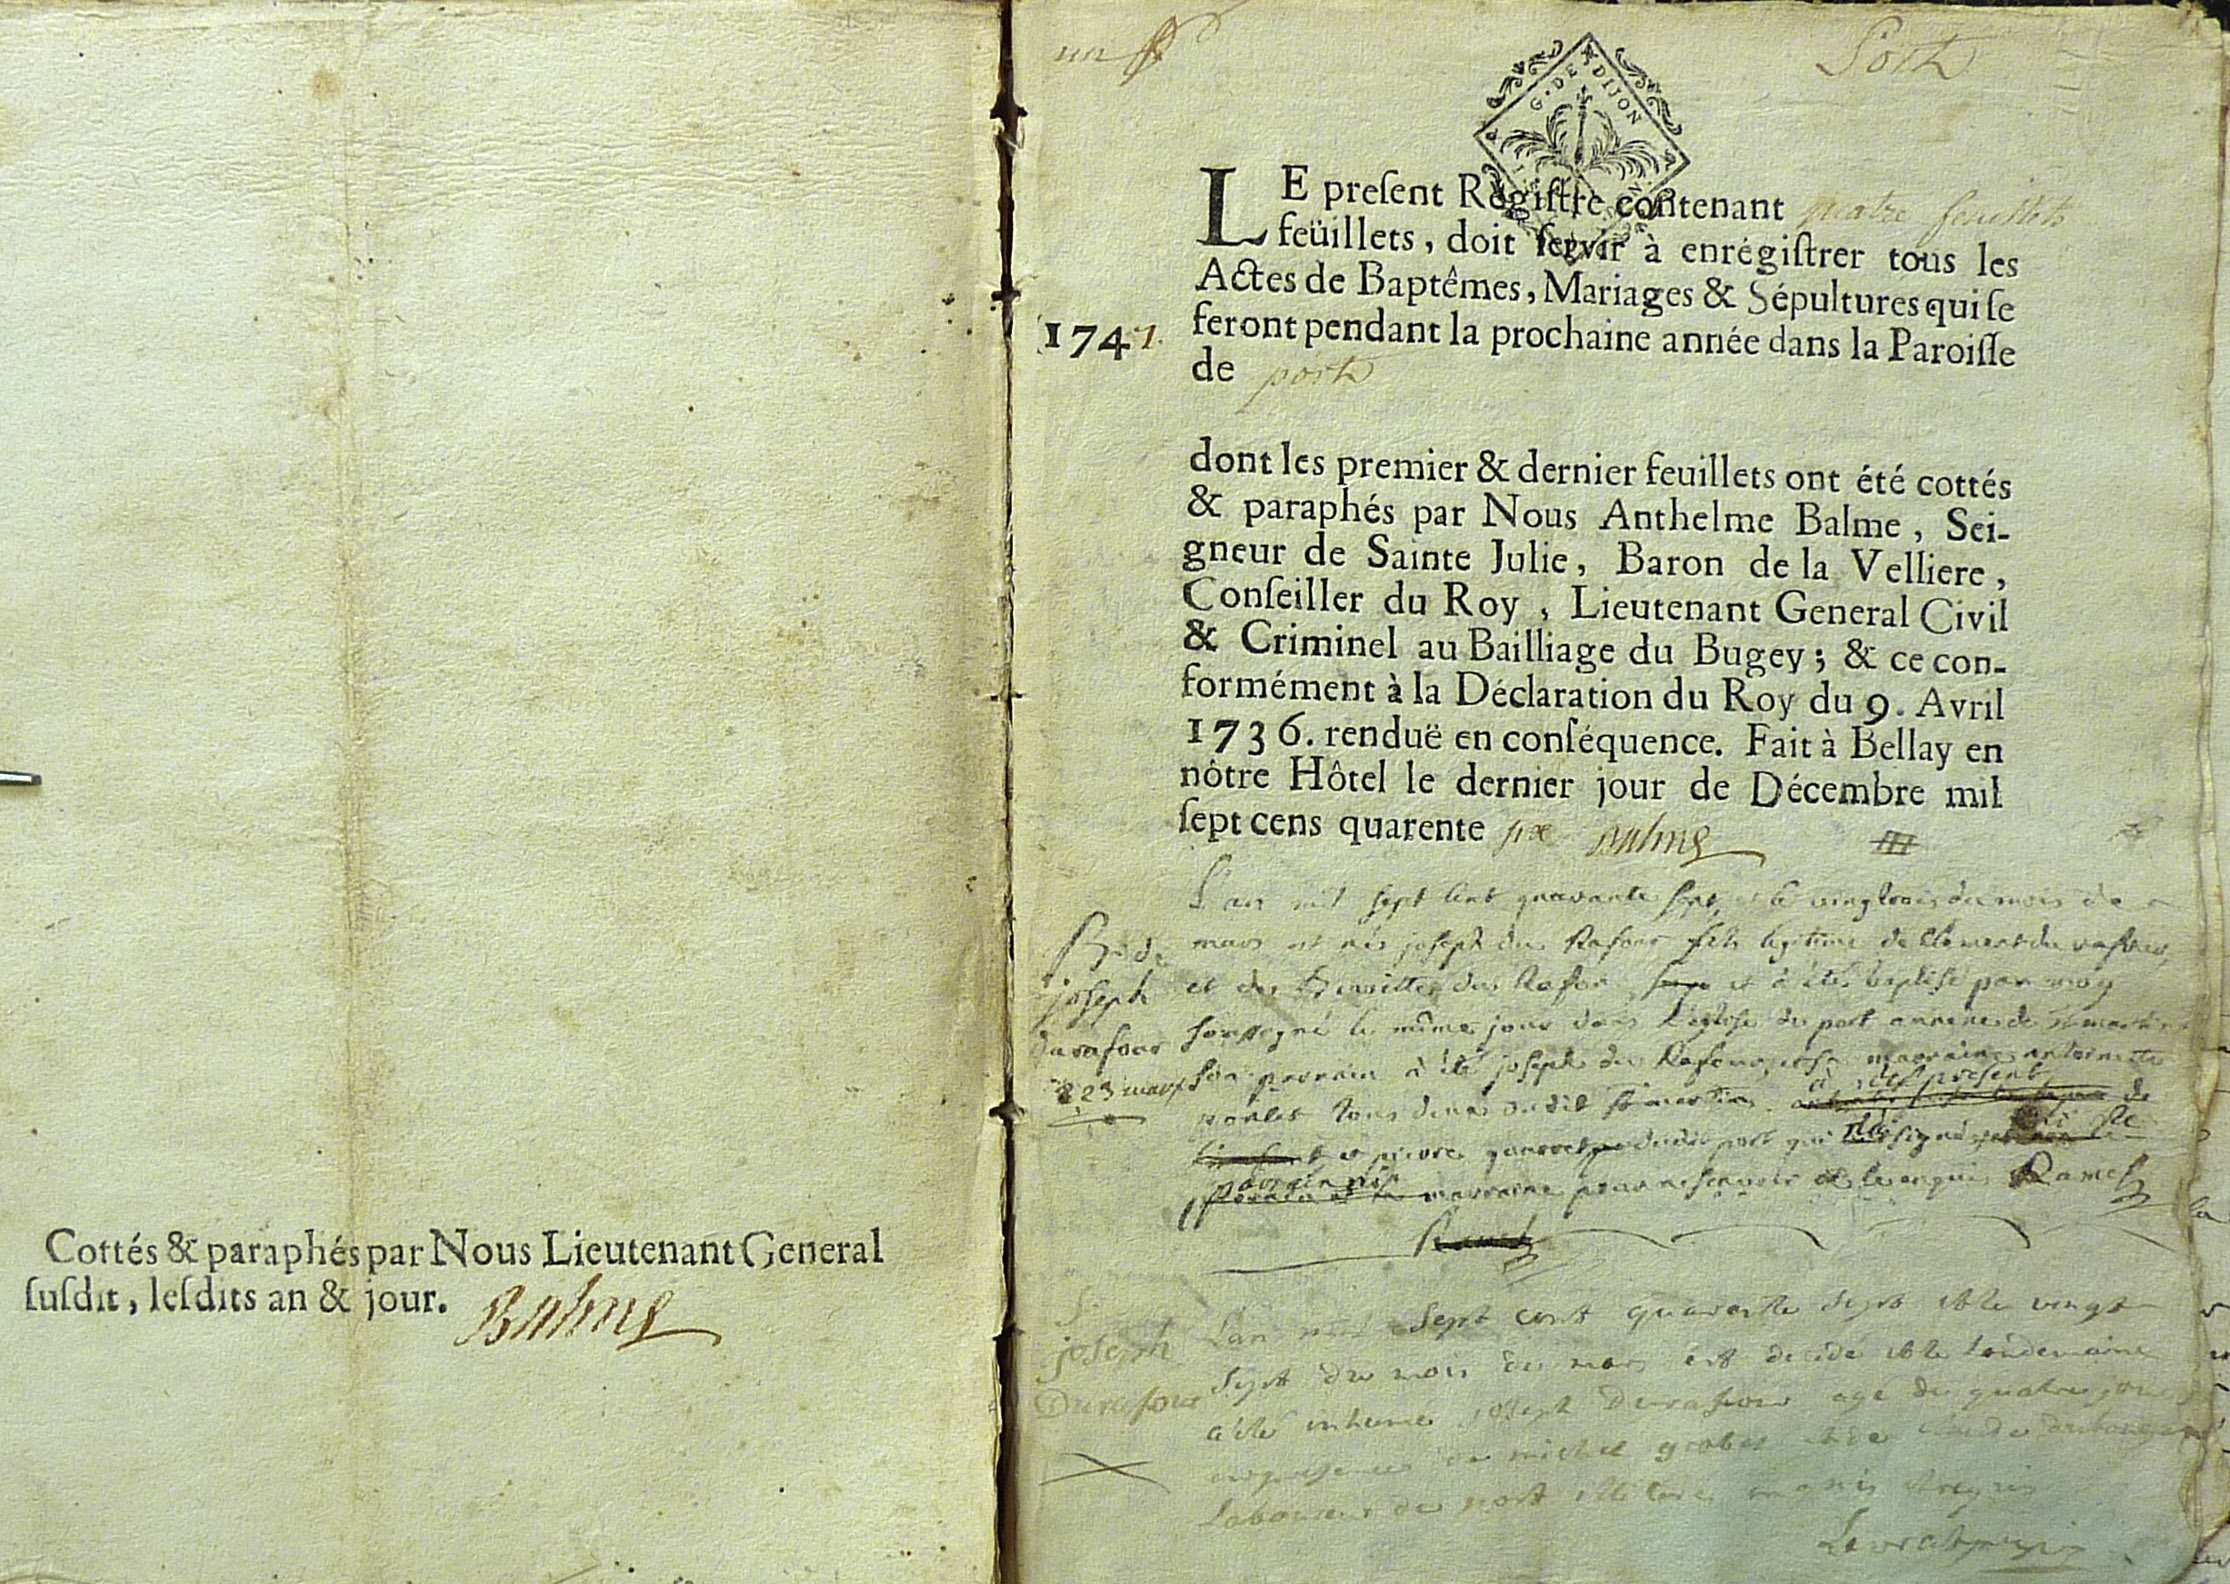 Cottés & paraphés par Nous Lieutenant General
susdit, lesdits an & jour. Balme
un
Port
G. DE DIJON
LE present Registre contenant quatre feuillets
feüillets, doit servir à enrégistrer tous les
Actes de Baptêmes, Mariages & Sépultures qui se
1747. feront pendant la prochaine année dans la Paroisse
de port
dont les premier & dernier feuillets ont été cottés
& paraphés par Nous Anthelme Balme, Sei-
gneur de Sainte Julie, Baron de la Velliere,
Conseiller du Roy, Lieutenant General Civil
& Criminel au Bailliage du Bugey; & ce con-
formément à la Déclaration du Roy du 9. Avril
1736. renduë en conséquence. Fait à Bellay en
nôtre Hôtel le dernier jour de Décembre mil
sept cens quarente six Balme
L'an mil sept cent quarante sept et le vingtrois du mois de
mars est nés joseph du Rafour fils legitime de Clement du rafour
et du Rafor et à été baptisé par moy
soussigné le même jour dans l'eglise du port annexe de st martin
son parrain à été joseph du Rafour et sa marraine antoinette
present
et pierre dudit port qui signé
parrain ni
marraine pour ne sçavoir de ce enquis Ramel
joseph
durafour
23 mars
L'an mil sept cent quarante sept et le vingt
sept du mois de mars est decedé et le lendemain
a été inhumé joseph Durafour agé de quatre jours
en presence de michel grobet et de Claude
laboureur du port illiterés enquis et requis
joseph
Durafour